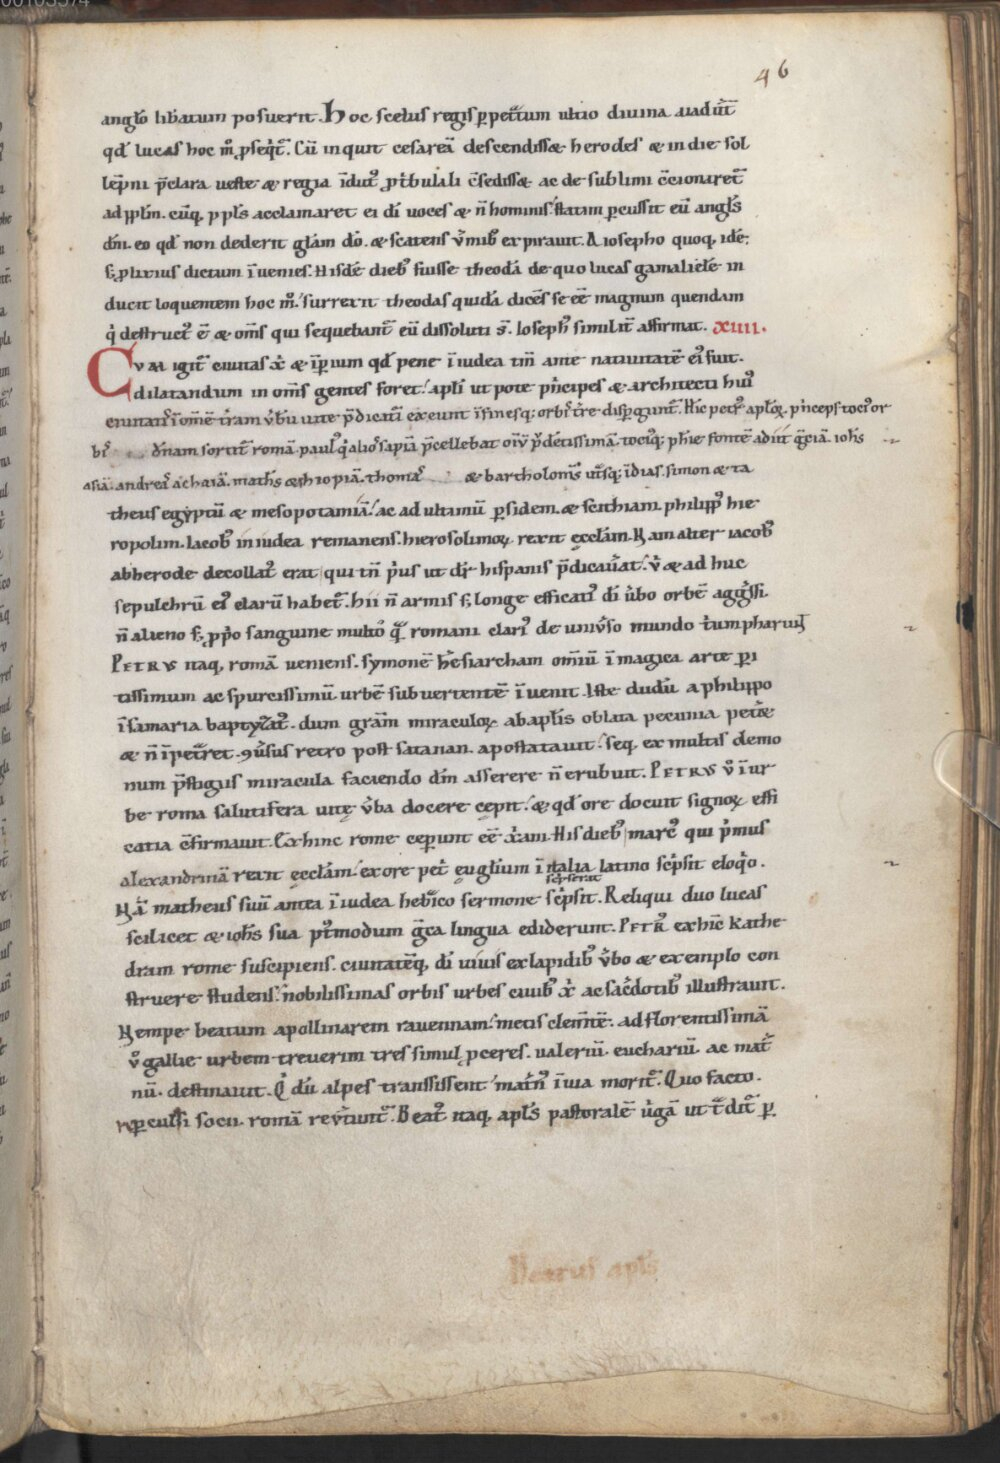 46
anglo liberatum posuerit. Hoc scelus regis ꝑpetᷓtum ultio diuina euadūt
qđ lucas hoc m̊ ꝓseq̄t. Cū inquit cesareā descendisse herodes & in die sol
lēpni p̄clara ueste & regia īdutꝰ ꝓ tribunali c̄sedisse ac de sublimi c̄cionaret᷑
ad pplm̄. cūq, ppls̄ acclamaret ei di uoces & n̄ hominis. statim ꝑcussit eū angls̄
dni. eo qđ non dederit glām dō. & scatens v̄mibꝰ expirauit. A iosepho quoq, idē
s; plixius dictum īuenies. Hisdē diebꝰ fuisse theodā de quo lucas gamalielē in
ducit loquentem hoc m̊. surrexit theodas quidā dicēs se eē magnum quendam
q̍ destructꝰ ē & om̄s qui sequebant᷑ eū dissoluti s̄. Ioseph̄ similit̄ affirmat. XIIII.
Cum igit᷑ ciuitas x̄ & īꝑium qđ pene ī iudea tm̄ ante natiuitatē eiꝰ fuit.
dilatandum in om̄s gentes foret. apli ut pote p̍ncipes & architecti huiꝰ
ciuitatis ī omē trām v̄bū uite p̄dicat̄i exeunt ī finesq; orbis tre disꝑgunt᷑. Hic petrꝰ aplo℞ p̍nceps tociꝰ or
bis dn̄am sortit᷑ romā. paulꝰ q̍ alios sapiā p̄cellebat
asiā. andreas achaiā. matheꝰ æthiopiā. thomas & bartholomeꝰ utsq; īdias. simon & ta
theus egyptū & mesopotamiā. ac ad ultimū ꝑsidem. & scithiam philippꝰ hie
ropolim. Iacobꝰ in iudea remanens. hierosolimo℞ rexit ęcclām. Nam alter iacobꝰ
abherode decollatꝰ erat qui tn̄ p̍us ut dr̄ hispanis p̄dicauᷓat. v̊ & ad huc
sepulchrū eiꝰ clarū habet᷑. hii n̄ armis s; longe efficaciꝰ di ūbo orbē aggᷓssi.
n̄ alieno s; pp̍o sanguine multo q̄ romani clariꝰ de uniūso mundo triumpharunt
PETRVS itaq, romā ueniens. symonē hēsiarcham omīū ī magica arte ꝑi
tissimum ac spurcissimū urbē subuertentē īuenit. Iste dudū a philippo
ī samaria baptyzatꝰ. dum grām miraculo℞ ab aplis̄ oblata pecunia petᷓe
& n̄ īpetᷓret. ꝯūsus retro post satanan. apostatauit. seq, ex multis demo
num p̄stigiis miracula faciendo dm̄ asserere n̄ erubuit. PETRVS v̊ ī ur
be roma salutifera uitę v̄ba docere cępit. & qđ ore docuit signo℞ effi
catia c̄firmauit. Exhinc rome ceperunt eē x̄ani. His diebꝰ marcꝰ qui p̍mus
alexandrinā rexit ęcclām. ex ore pet̍ euglium ī italia latino sc̍psit eloq̍o.
Nā matheus suū antea ī iudea hebᷓico sermone sc̍psit. Reliqui duo lucas
scripserat
scilicet & ioh̄s sua pꝰtmodum gᷓca lingua ediderunt. PETRꝰ exhīc kathe
dram rome suscipiens. ciuitatēq, di uiuis ex lapidibꝰ v̄bo & exemplo con
struere studens. nobilissimas orbis urbes ciuibꝰ x̄ ac sac̄dotibꝰ illustrauit.
Nempe beatum apollinarem rauennam. metis clem̄tē. ad florentissimā
v̊ gallie urbem treuerim tres simul ꝓceres. ualeriū. euchariū. ac mat̄
nū. destinauit. Q̍ dū alpes transsissent mat̄nꝰ ī uia morit᷑. Quo facto.
ꝑculsi socii. romā reūtunt᷑. Beatꝰ itaq, apls̄ pastoralē ūgā ut tᷓdit᷑ ꝑ
Petrus apls̄